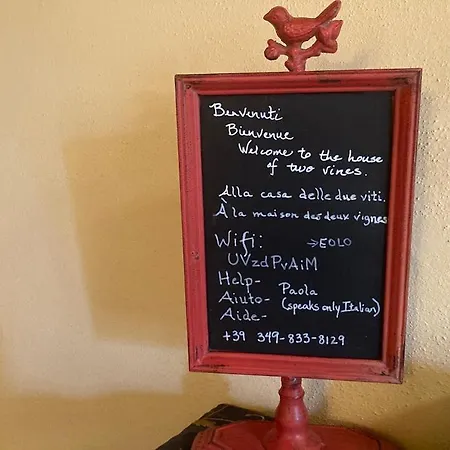 Benvenuti
Bienvenue
Welcome to the house
of two vines.
Alla casa delle due viti.
À la maison des deux vignes
Wifi: → EOLO
UVzdPvAiM
Help- Paola
Aiuto- (speaks only Italian)
Aide-
+39 349-833-8129